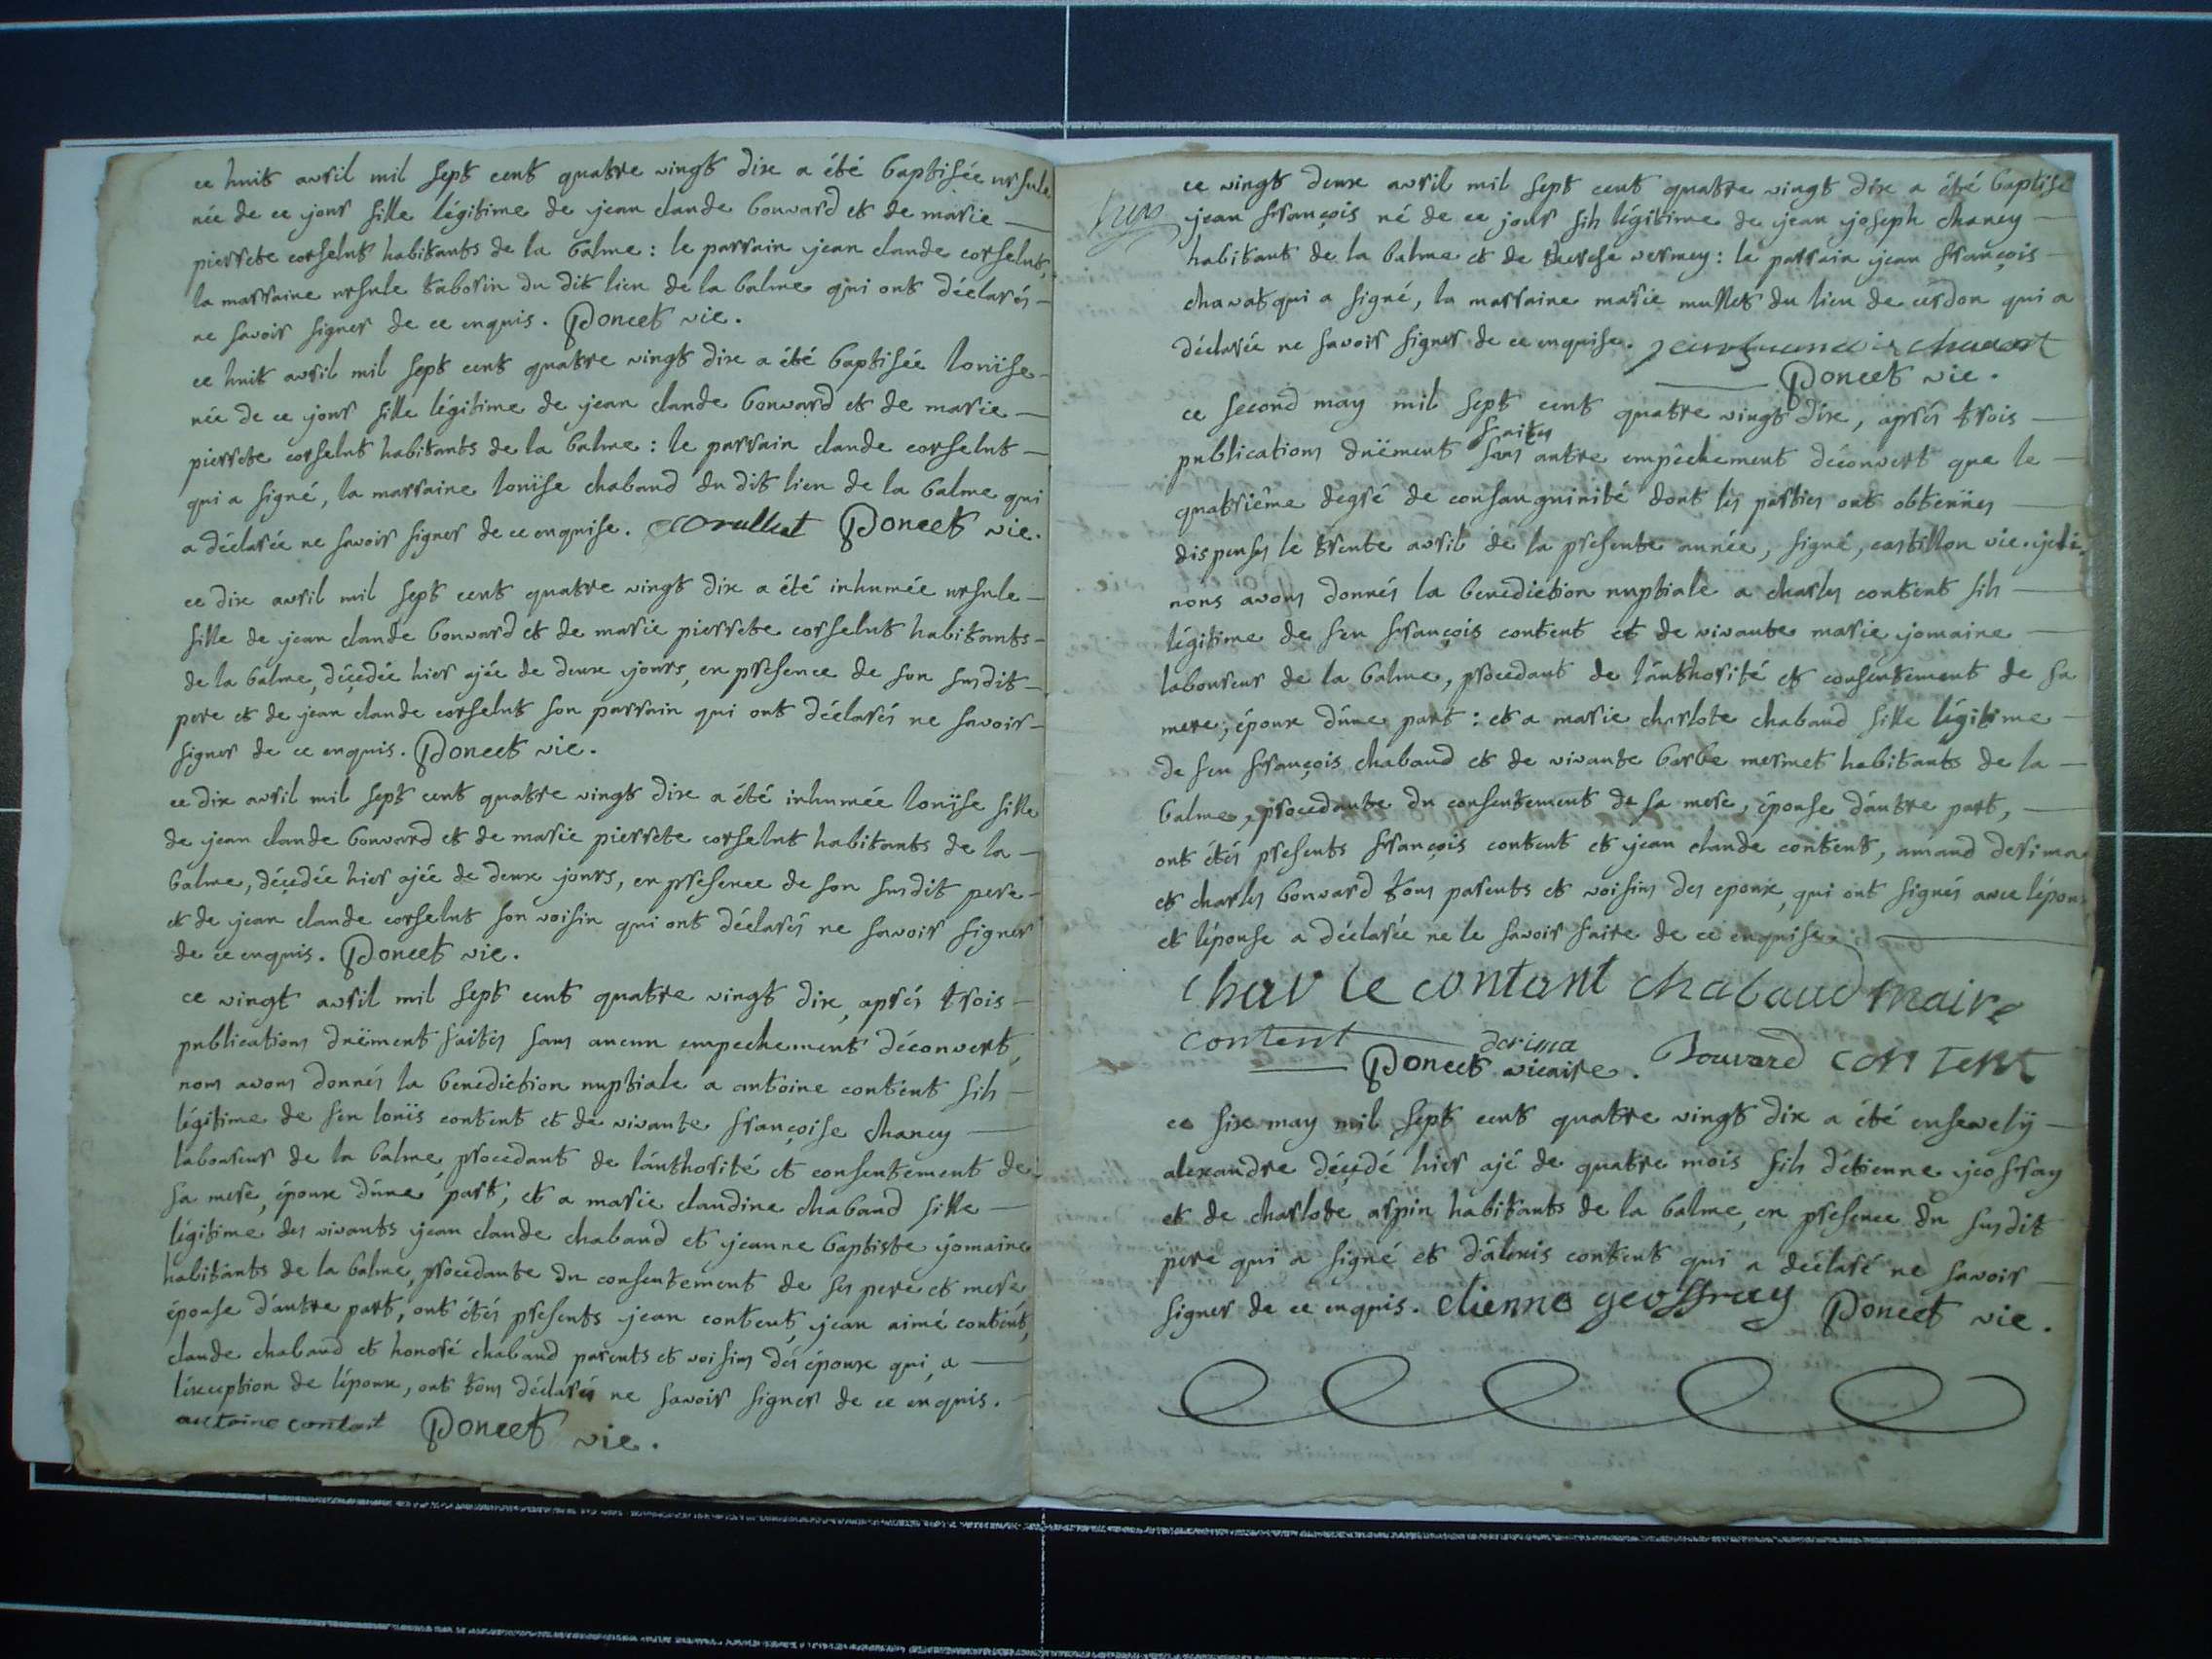 ce huit avril mil sept cent quatre vingt dix a été baptisée ursule
née de ce jour fille légitime de jean claude bouvard et de marie
pierrete corselut habitants de la balme : le parrain jean claude corselut,
la marraine ursule taborin du dit lieu de la balme qui ont déclarés
ne savoir signer de ce enquis. Poncet vic.
ce huit avril mil sept cent quatre vingt dix a été baptisée loüise
née de ce jour fille légitime de jean claude bouvard et de marie
pierrete corselut habitants de la balme : le parrain claude corselut
qui a signé, la marraine loüise chabaud du dit lieu de la balme qui
a déclarée ne savoir signer de ce enquise. Poncet vic.
ce dix avril mil sept cent quatre vingt dix a été inhumée ursule
fille de jean claude bouvard et de marie pierrete corselut habitants
de la balme, déçédée hier ajée de deux jours, en présence de son susdit
pere et de jean claude corselut son parrain qui ont déclarés ne savoir
signer de ce enquis. Poncet vic.
ce dix avril mil sept cent quatre vingt dix a été inhumée loüise fille
de jean claude bouvard et de marie pierrete corselut habitants de la
balme, déçédée hier ajée de deux jours, en présence de son susdit pere
et de jean claude corselut son voisin qui ont déclarés ne savoir signer
de ce enquis. Poncet vic.
ce vingt avril mil sept cent quatre vingt dix, aprés trois
publications duëment faites sans aucun empechement découvert,
nous avons donnés la benediction nuptiale a antoine content fils
légitime de feu loüis content et de vivante françoise chancy
laboureur de la balme, procedant de l'authorité et consentement de
sa mere, époux d'une part, et a marie claudine chabaud fille
légitime des vivants jean claude chabaud et jeanne baptiste jomaine
habitants de la balme, procedante du consentement de ses pere et mere
épouse d'autre part, ont étés présents jean content, jean aimé content,
claude chabaud et honoré chabaud parents et voisins des époux qui, a
l'exception de l'époux, ont tous déclarés ne savoir signer de ce enquis.
antoine contant Poncet vic.
ce vingt deux avril mil sept cent quatre vingt dix a été baptisé
jean françois né de ce jour fils légitime de jean joseph chancy
habitant de la balme et de therese vermey : le parrain jean françois
chavat qui a signé, la marraine marie mullet du lieu de cerdon qui a
déclarée ne savoir signer de ce enquise. jean francois chavat
Poncet vic.
ce second may mil sept cent quatre vingt dix, aprés trois
publications duëment faites sans autre empêchement découvert que le
quatriême degré de consanguinité dont les parties ont obtenües
dispenses le trente avril de la presente année, signé, castillon vic. gé.
nous avons donnés la benediction nuptiale a charles content fils
légitime de feu françois content et de vivante marie jomaine
laboureur de la balme, procedant de l'authorité et consentement de sa
mere, époux d'une part : et a marie charlote chabaud fille légitime
de feu françois chabaud et de vivante barbe mermet habitants de la
balme, procedante du consentement de sa mere, épouse d'autre part,
ont étés presents françois content et jean claude content, amand derima
et charles bouvard tous parents et voisins des epoux, qui ont signés avec l'époux
et l'épouse a déclarée ne le savoir faire de ce enquise.
char le contant chabaud maire
content derima Bouvard content
Poncet vicaire.
ce six may mil sept cent quatre vingt dix a été ensevely
alexandre déçédé hier ajé de quatre mois fils d'étienne jeoffray
et de charlote arpin habitants de la balme, en presence du susdit
pere qui a signé et d'alexis content qui a déclaré ne savoir
signer de ce enquis. etienne geoffray Poncet vic.